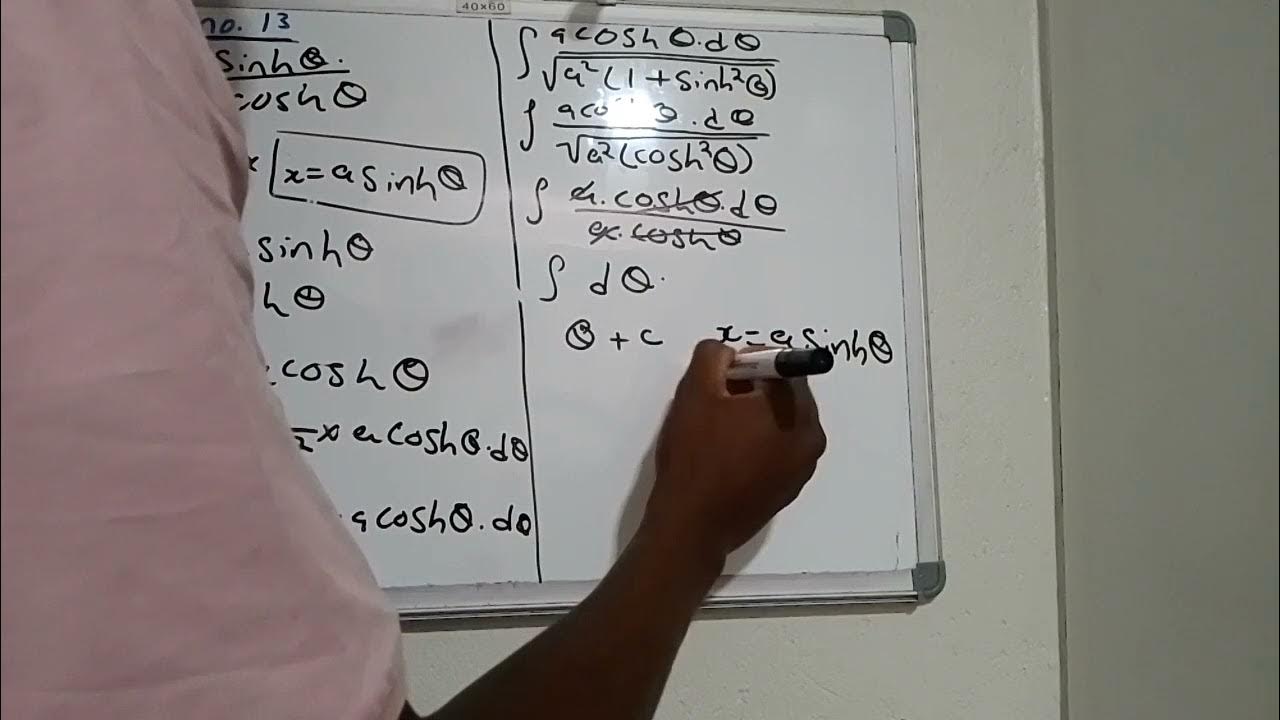 40x60
no. 13
sinhθ.
coshθ
x x = a sinhθ
sinhθ
hθ
coshθ
2 x a coshθ.dθ
. a coshθ.dθ
∫ a coshθ.dθ
√a²(1 + sinh²θ)
∫ a co θ.dθ
√a²(cosh²θ)
∫ a. coshθ.dθ
a. coshθ
∫ dθ.
θ + c x = a sinhθ